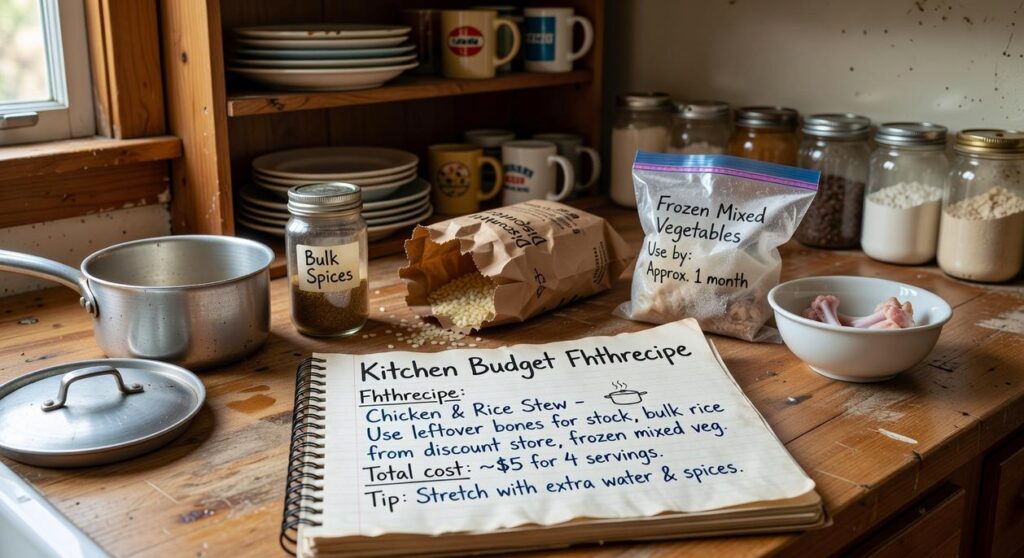 Bulk
Spices
Discount
Frozen Mixed
Vegetables
Use by:
Approx. 1 month
Kitchen Budget Fhthrecipe
Fhthrecipe:
Chicken & Rice Stew –
Use leftover bones for stock, bulk rice
from discount store, frozen mixed veg.
Total cost: ~$5 for 4 servings.
Tip: Stretch with extra water & spices.